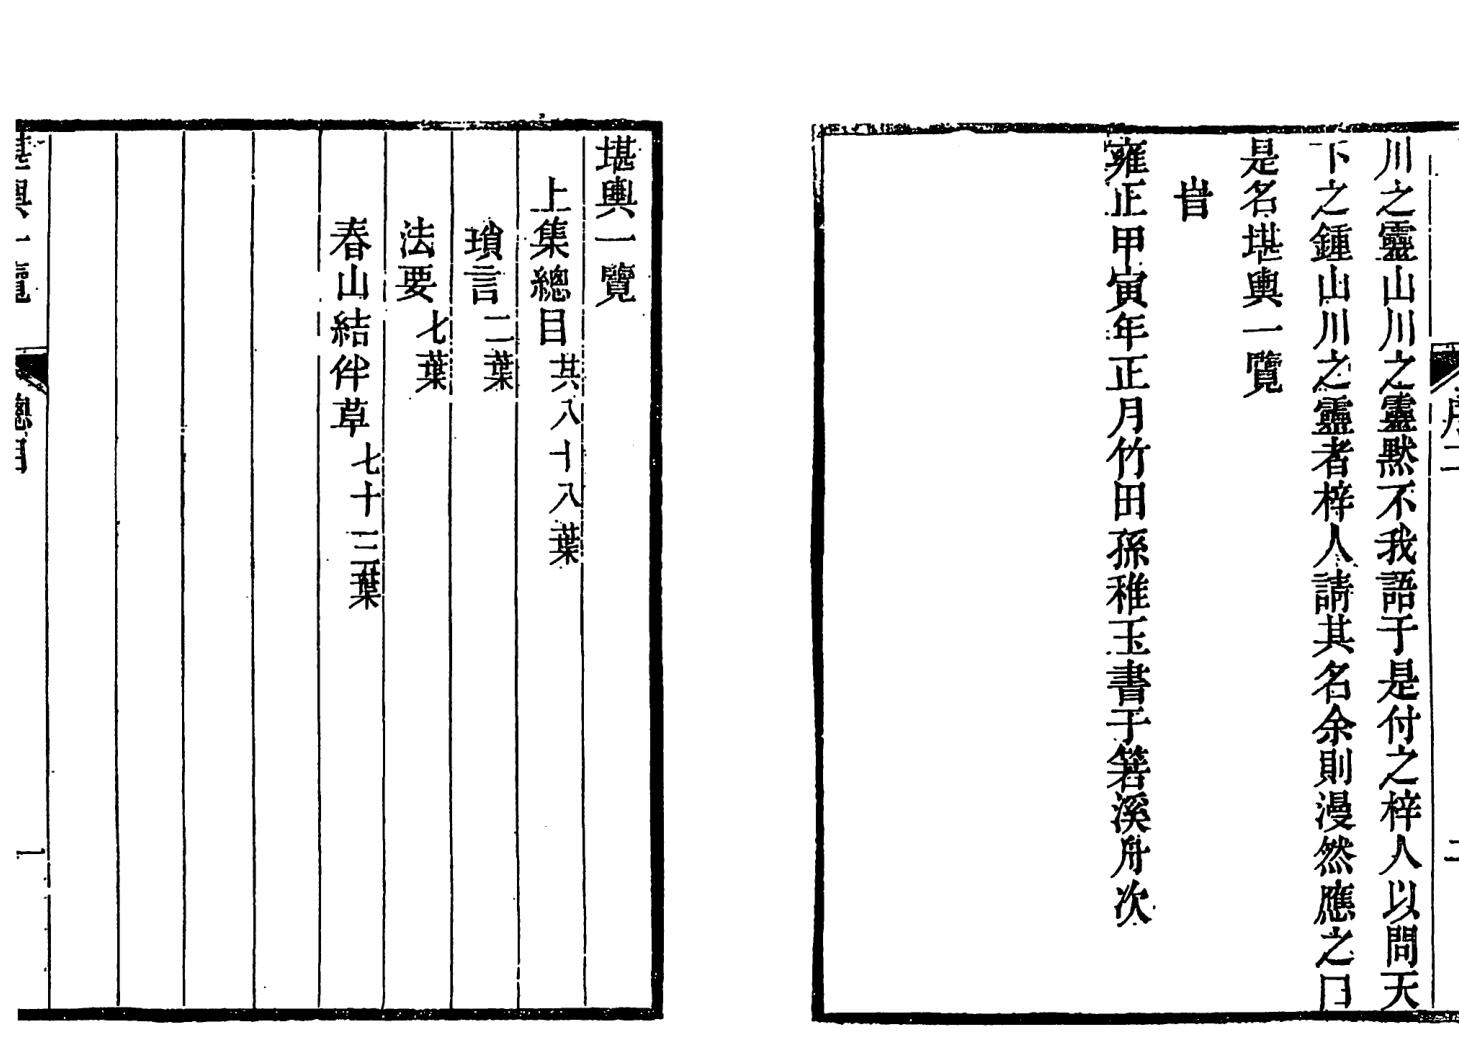 川之靈山川之靈默不我語于是付之梓人以問天
下之鍾山川之靈者梓人請其名余則漫然應之曰
是名堪輿一覽
旹
雍正甲寅年正月竹田孫稚玉書于箬溪舟次
序二
二
堪輿一覽
上集總目共八十八葉
瑣言二葉
法要七葉
春山結伴草七十三葉
堪輿一覽
總目
一